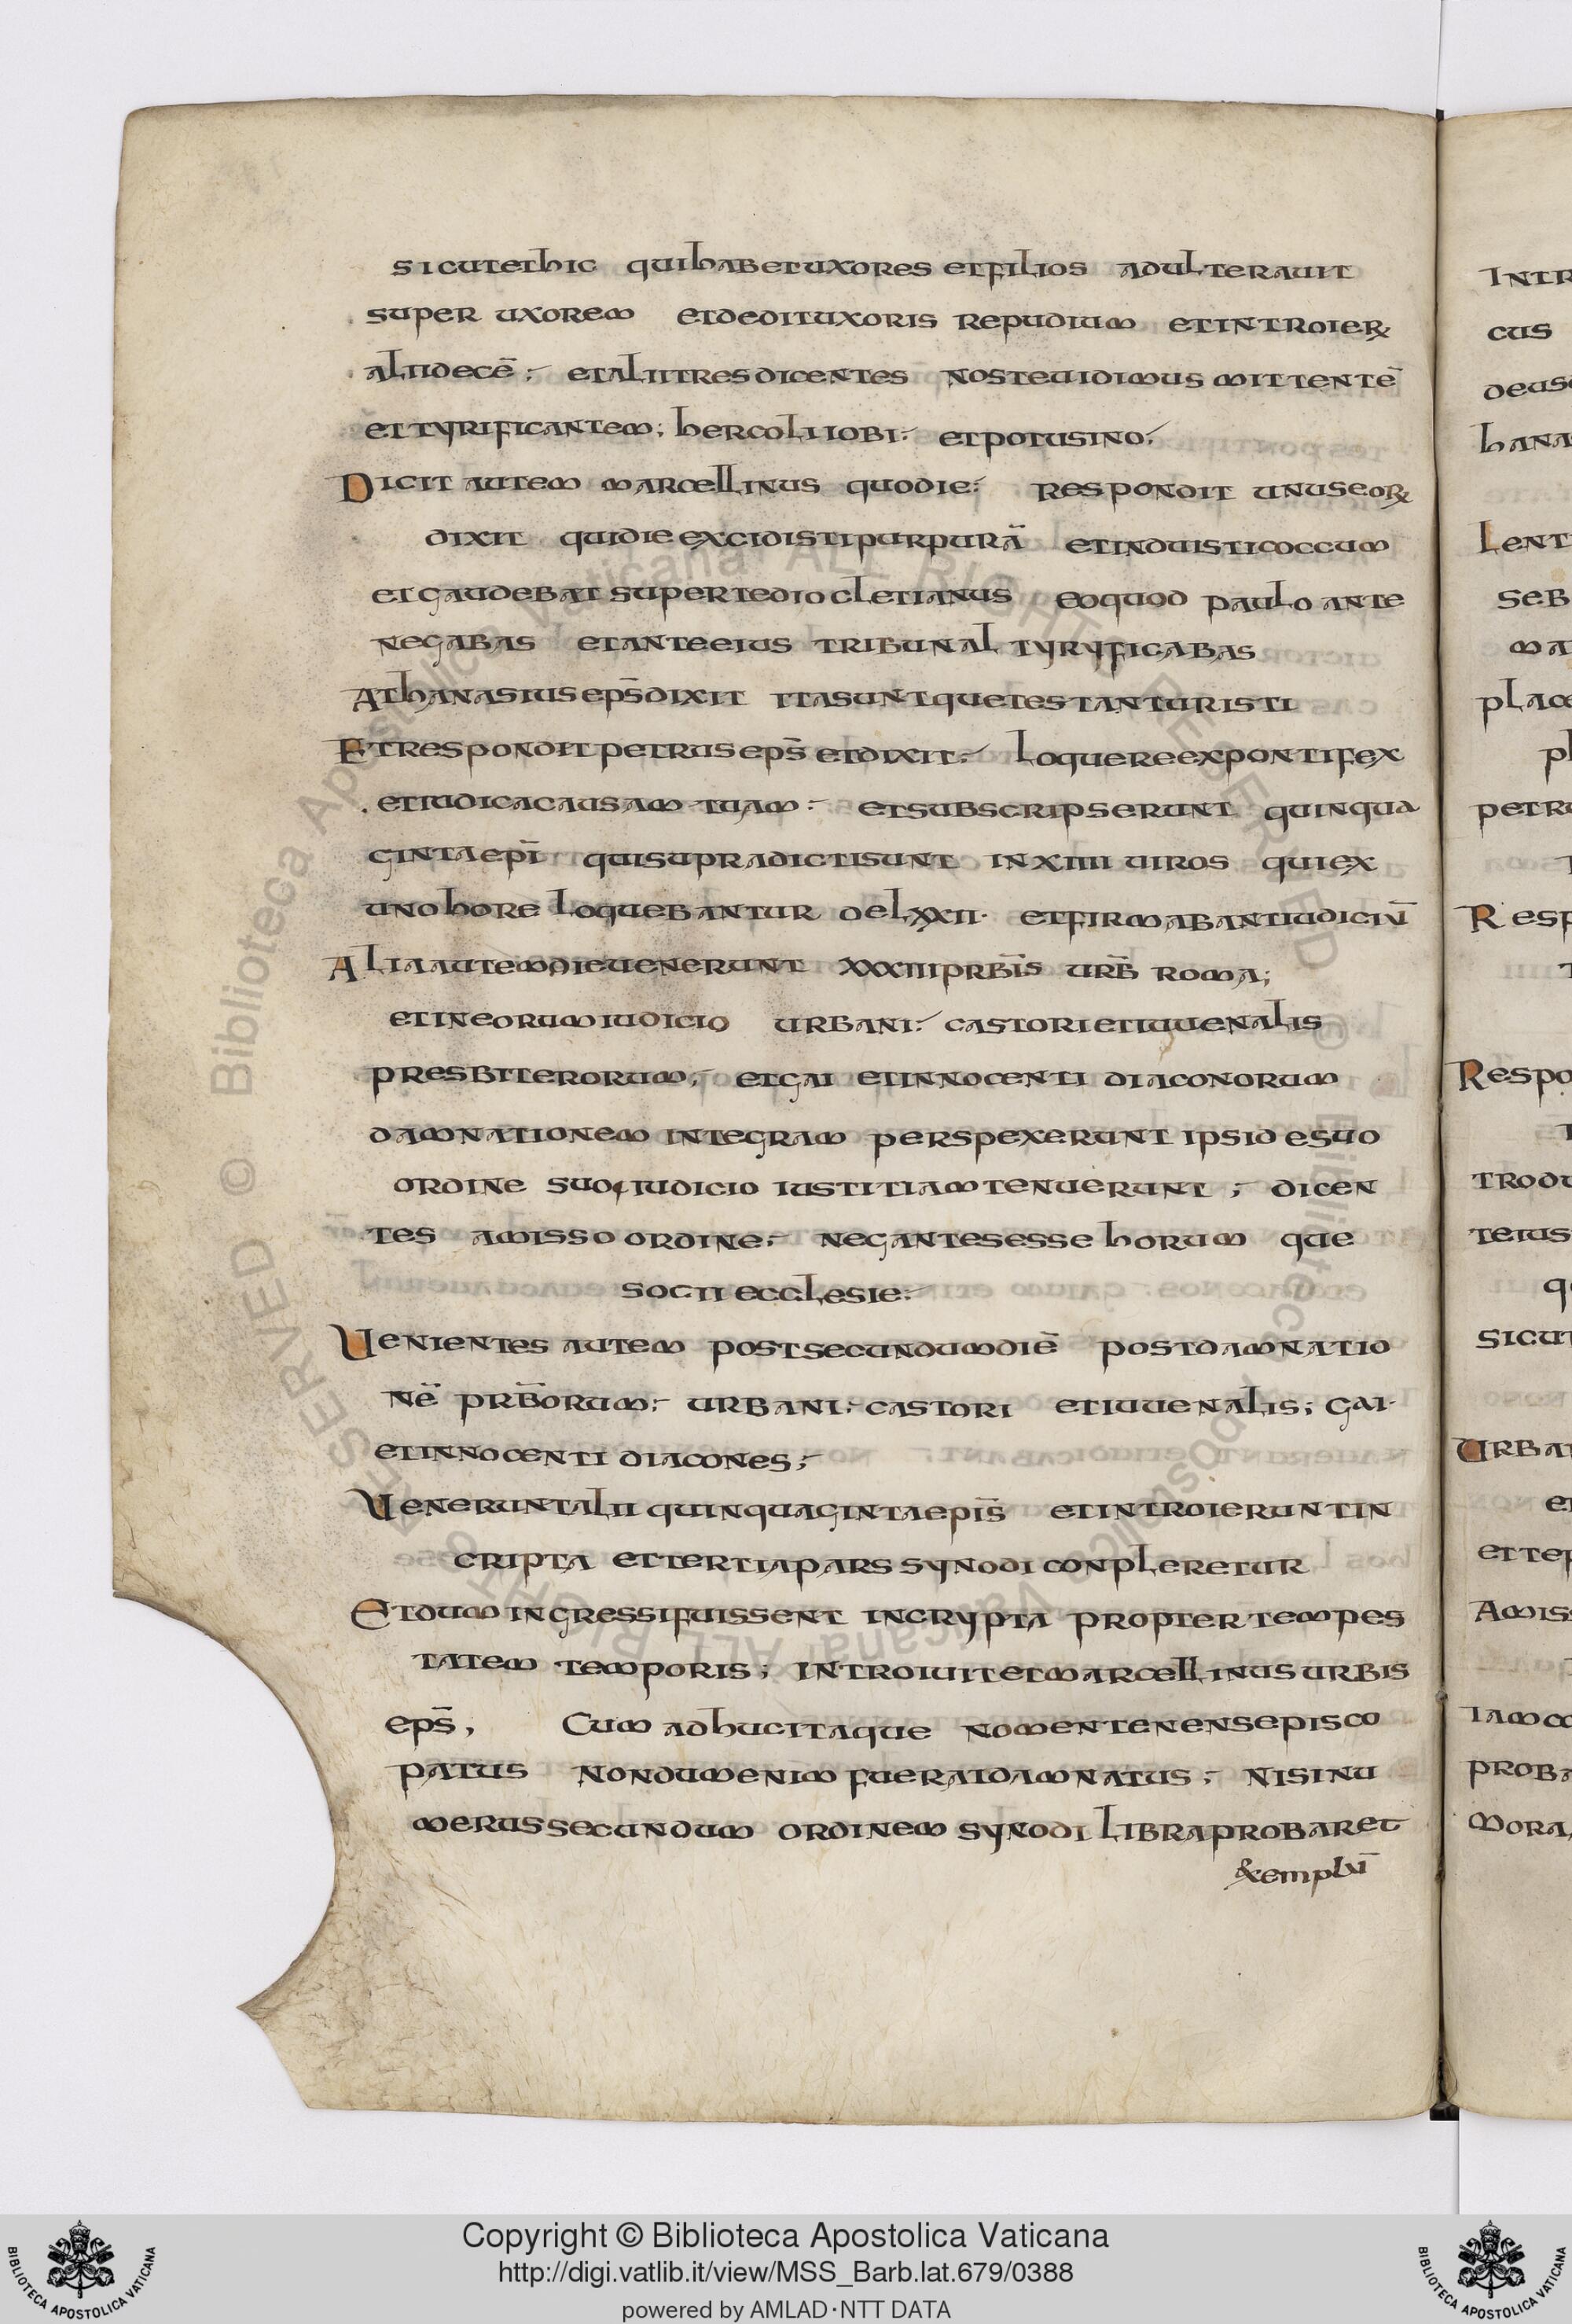 sicutethic quihabetuxores etfilios adulterauit
super uxorem etdedituxoris repudium etintroier&
aliidecē ; etaliitresdicentes nosteuidimus mittentē
ettyrificantem; hercoliiobi; etpotusino;
Dicit autem marcellinus quodie; respondit unuseor&
dixit quidie excidistipurpurā etinduisticoccum
etgaudebat supertediocletianus eoquod paulo ante
negabas etanteeius tribunal tyryficabas
Athanasius ep̄s dixit itasuntquetestanturisti
Etrespondit petrus ep̄s etdixit; loquereexpontifex
etiudicacausam tuam; etsubscripserunt quinqua
gintaepī quisupradictisunt inxiiii uiros quiex
unohore loquebantur delxxii· etfirmabantiudiciū
Aliaautemdieuenerunt xxxiiiprb̄is urb̄ roma;
etineorumiudicio urbani; castorietiuuenalis
presbiterorum; etgai etinnocenti diaconorum
damnationem integram perspexerunt ipsidesuo
ordine suoq iudicio iustitiamtenuerunt ; dicen
tes amisso ordine; negantesesse horum que
socii ecclesie;
Uenientes autem postsecundumdiē postdamnatio
nē prb̄orum; urbani; castori etiuuenalis; gai·
etinnocenti diacones;
Ueneruntalii quinquagintaepīs etintroieruntin
cripta ettertiapars synodi conpleretur
Etdumingressifuissent incrypta propter tempes
tatem temporis; introiuitetmarcellinusurbis
ep̄s, Cum adhucitaque nomentenensepisco
patus nondumenim fueratdamnatus; nisinu
merussecundum ordinem synodi libraprobaret
&emplū
Intr
cus
deus
hana
Lent
seb
ma
plac
pl
petru
Resp
Respo
trodu
teius
q
sicut
Urban
et
etter
Amiss
iamco
proba
mora
Copyright © Biblioteca Apostolica Vaticana
http://digi.vatlib.it/view/MSS_Barb.lat.679/0388
powered by AMLAD·NTT DATA
BIBLIOTECA APOSTOLICA VATICANA
BIBLIOTECA APOSTOLICA VATICANA